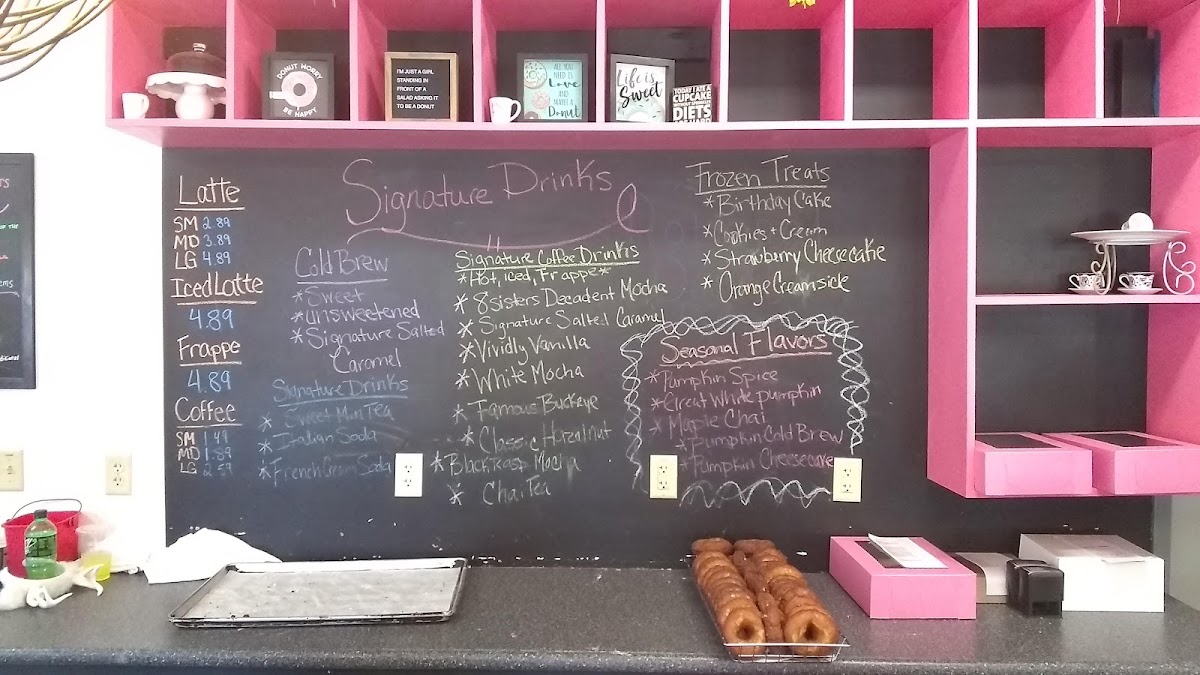 DONUT WORRY
BE HAPPY
I'M JUST A GIRL
STANDING IN
FRONT OF A
SALAD ASKING IT
TO BE A DONUT
ALL YOU
NEED IS
Love
AND
MAYBE A
Donut
Life is
Sweet
TODAY I ATE A
CUPCAKE
WITHOUT SPRINKLES
DIETS
ARE HARD
Latte
SM 2.89
MD 3.89
LG 4.89
Iced Latte
4.89
Frappe
4.89
Coffee
SM 1.49
MD 1.89
LG 2.59
Signature Drinks
Cold Brew
*Sweet
*unsweetened
*Signature Salted
Caramel
Signature Drinks
* Sweet Mint Tea
* Italian Soda
*French Cream Soda
Signature Coffee Drinks
*Hot, iced, Frappe*
* 8sisters Decadent Mocha
* Signature Salted Caramel
*Vividly Vanilla
*White Mocha
* Famous Buckeye
* Classic Hazelnut
*Black Rasp Mocha
* Chai Tea
Frozen Treats
*Birthday Cake
*Cookies + Cream
*Strawberry Cheesecake
* Orange Creamsicle
Seasonal Flavors
*Pumpkin Spice
*Great White pumpkin
* Maple Chai
*Pumpkin Cold Brew
*Pumpkin Cheesecake